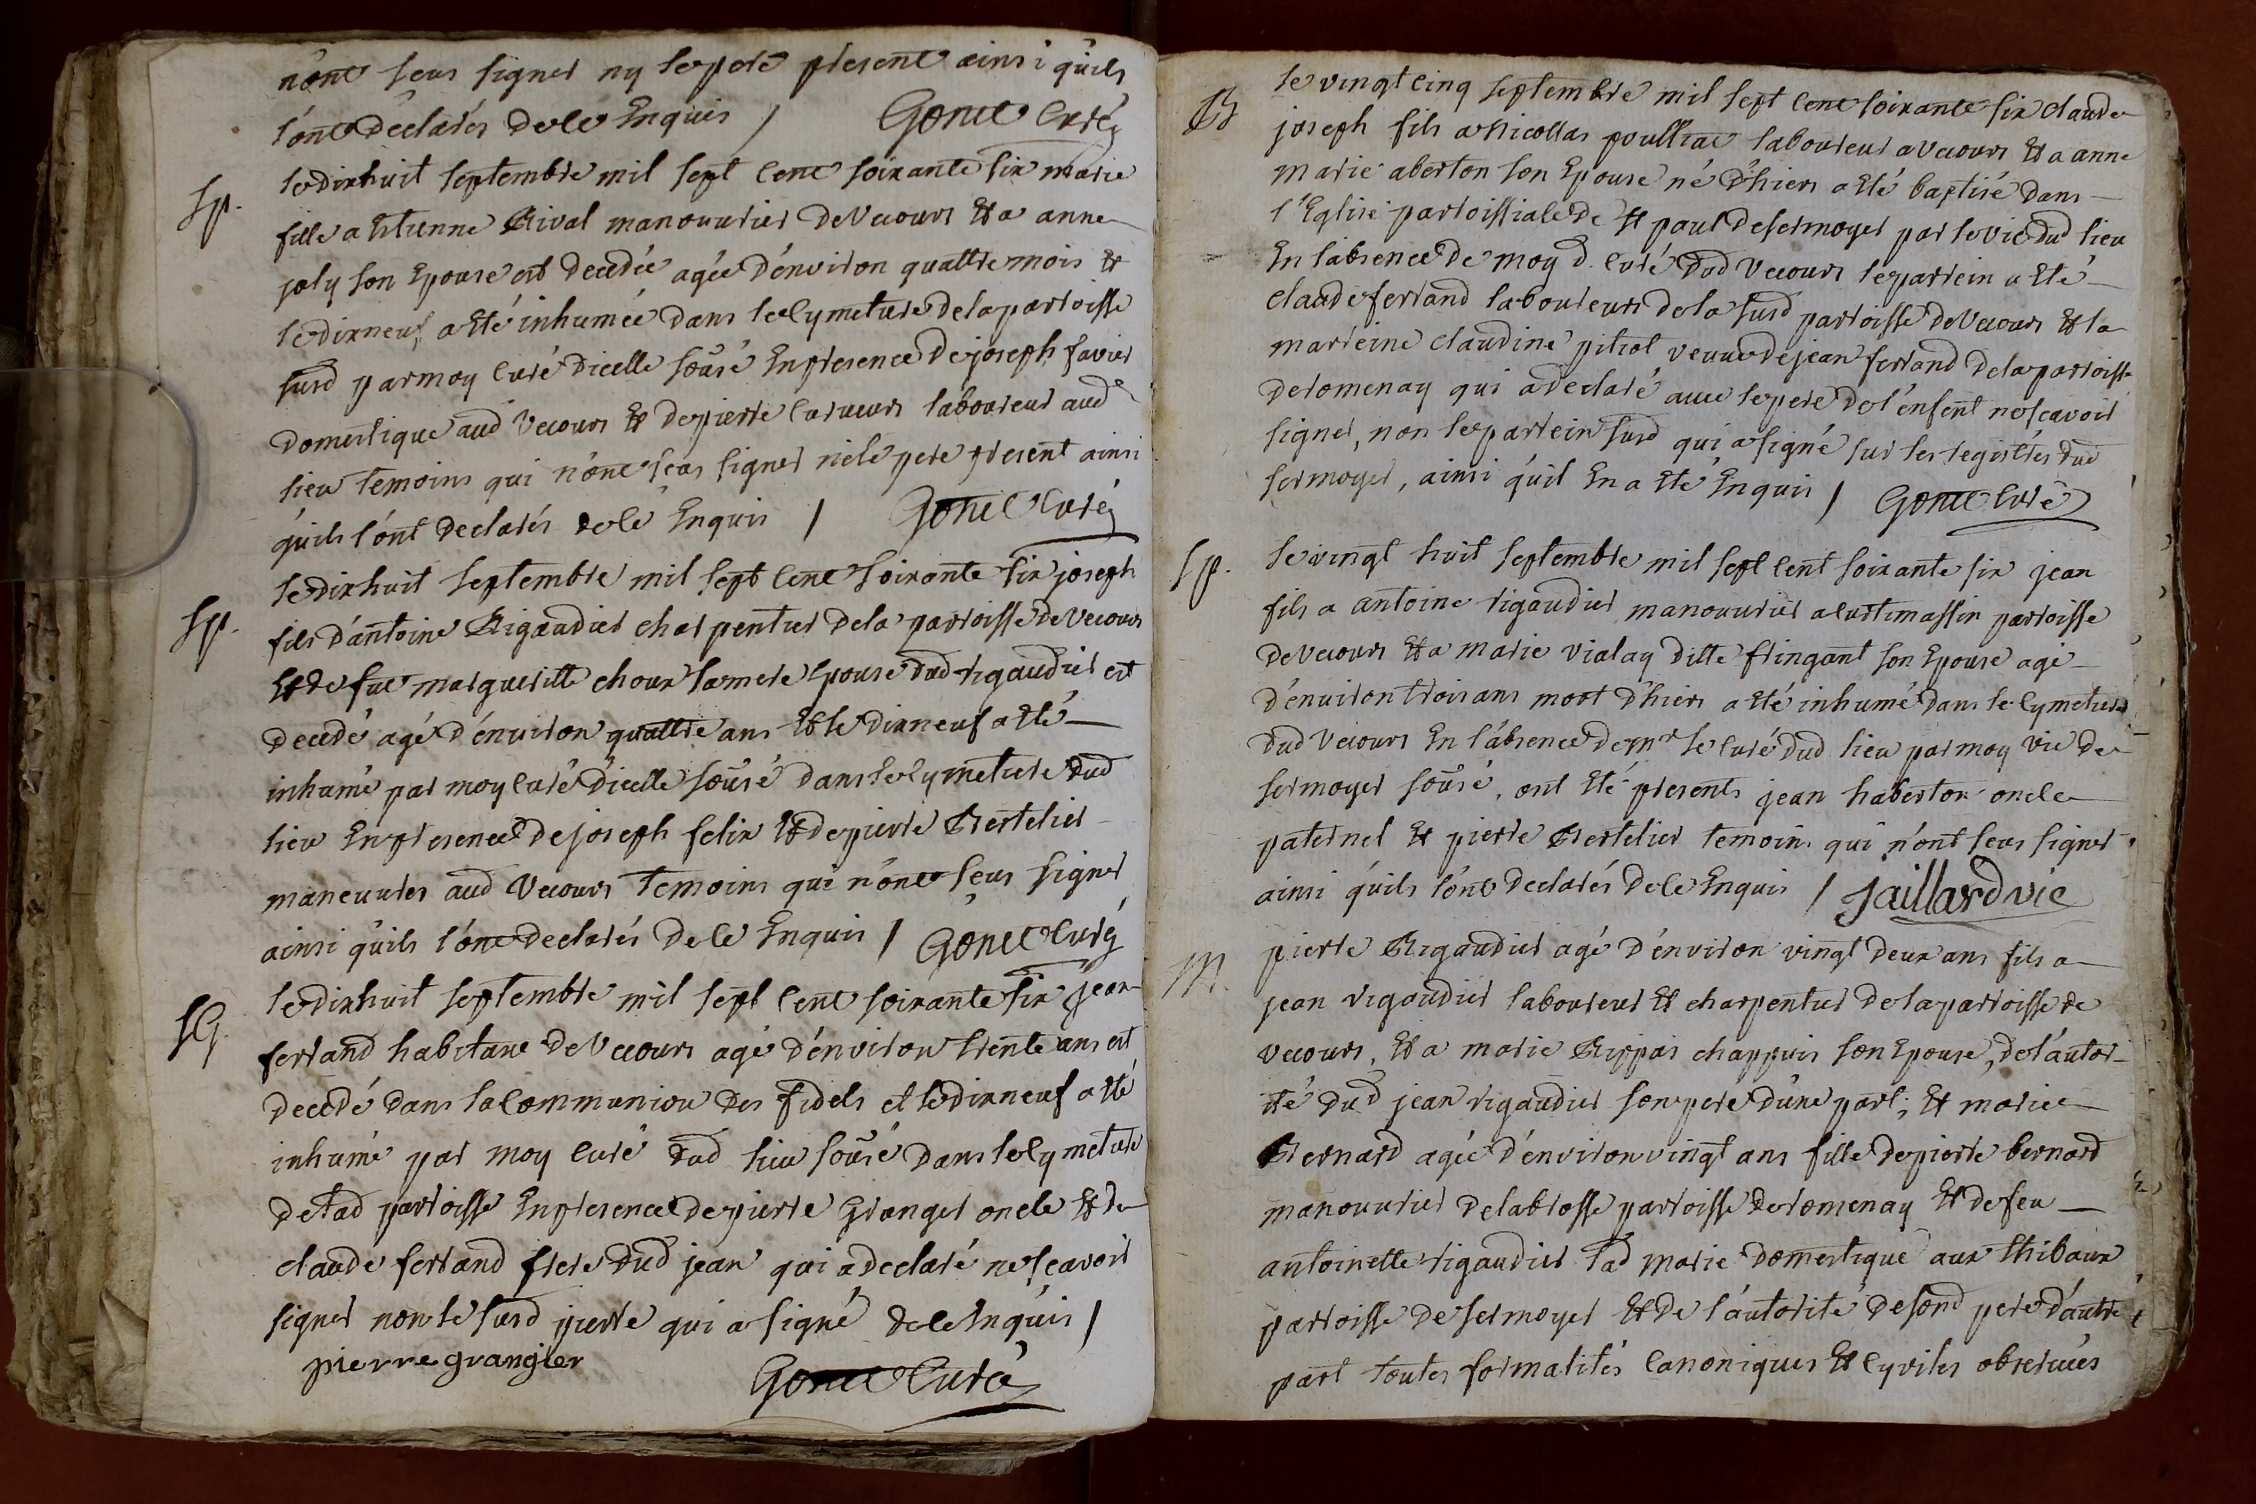 n'ont sçeu signer ny le pere present ainsi qu'ils
l'ont declarés de ce Enquis / Gonet Curé
Sp.
le dixhuit septembre mil sept cent soixante six marie
fille a Etienne Rival manouvrier de Vecours Et a anne
joly son Epouse est decedée agée d'environ quattre mois Et
le dixneuf a Eté inhumée dans le Cymetiere de la paroisse
susd par moy Curé d'icelle soussé En presence de joseph favier
domestique aud Vecours Et de pierre laboureur aud
lieu temoins qui n'ont sçeu signer ni le pere present ainsi
qu'ils l'ont declarés de ce Enquis / Gonet Curé
Sp.
le dixhuit septembre mil sept cent soixante six joseph
fils d'antoine Rigaudier charpentier de la paroisse de Vecours
Et de fue margueritte choux sa mere Epouse dud rigaudier est
decedé agé d'environ quattre ans Et le dixneuf a Eté
inhumé par moy Curé d'icelle soussé dans le Cymetiere dud
lieu En presence de joseph felix Et de pierre Bertelier
maneuvres aud Vecours temoins qui n'ont sçeu signer
ainsi qu'ils l'ont declarés de ce Enquis / Gonet Curé
SG.
le dixhuit septembre mil sept cent soixante six jean
ferrand habitant de Vecours agé d'environ trente ans est
decedé dans la Communion des fidels et le dixneuf a Eté
inhumé par moy Curé dud lieu soussé dans le Cymetiere
de lad paroisse En presence de pierre Granger oncle Et de
claude ferrand frere dud jean qui a declaré ne sçavoir
signer non le susd pierre qui a signé de ce Enquis /
pierre grangier
Gonet Curé
B
le vingt cinq septembre mil sept cent soixante six claude
joseph fils a Nicollas poulliat laboureur a Vecours Et a anne
marie aberton son Epouse né d'hiers a Eté baptisé dans
l'Eglise paroissiale de St paul de sermoyer par le vic dud lieu
En l'absence de moy d. Curé dud Vecours le parrein a Eté
claude ferrand laboureurs de la susd paroisse de Vecours Et la
marreine claudine pitrat veuve de jean ferrand de la paroisse
de romenay qui a declaré avec le pere de l'enfent ne sçavoir
signer, non le parrein susd qui a signé sur les registres dud
sermoyer, ainsi qu'il En a Eté Enquis / Gonet Curé
Sp.
le vingt huit septembre mil sept cent soixante six jean
fils a antoine rigaudier manouvrier a Curtimassin paroisse
de Vecours Et a marie vialay ditte fringant son Epouse agé
d'environ trois ans mort d'hiers a Eté inhumé dans le Cymetiere
dud Vecours En l'absence de mr le Curé dud lieu par moy vic de
sermoyer soussé, ont Eté presents jean haberton oncle
paternel Et pierre Bertelier temoins qui n'ont sçeu signer
ainsi qu'ils l'ont declarés de ce Enquis / Jaillard vic
M.
pierre Rigaudier agé d'environ vingt deux ans fils a
jean rigaudier laboureur Et charpentier de la paroisse de
vecours, Et a marie Rippas chappuis son Epouse, de l'autor-
ité dud jean rigaudier son pere d'une part; Et marie
Bernard agée d'environ vingt ans fille de pierre bernard
manouvrier de la brosse paroisse de romenay Et de feu
antoinette rigaudier lad marie domestique aux thibaux
paroisse de sermoyer Et de l'autorité de sond pere d'autre
part toutes formalités Canoniques Et Cyviles observées